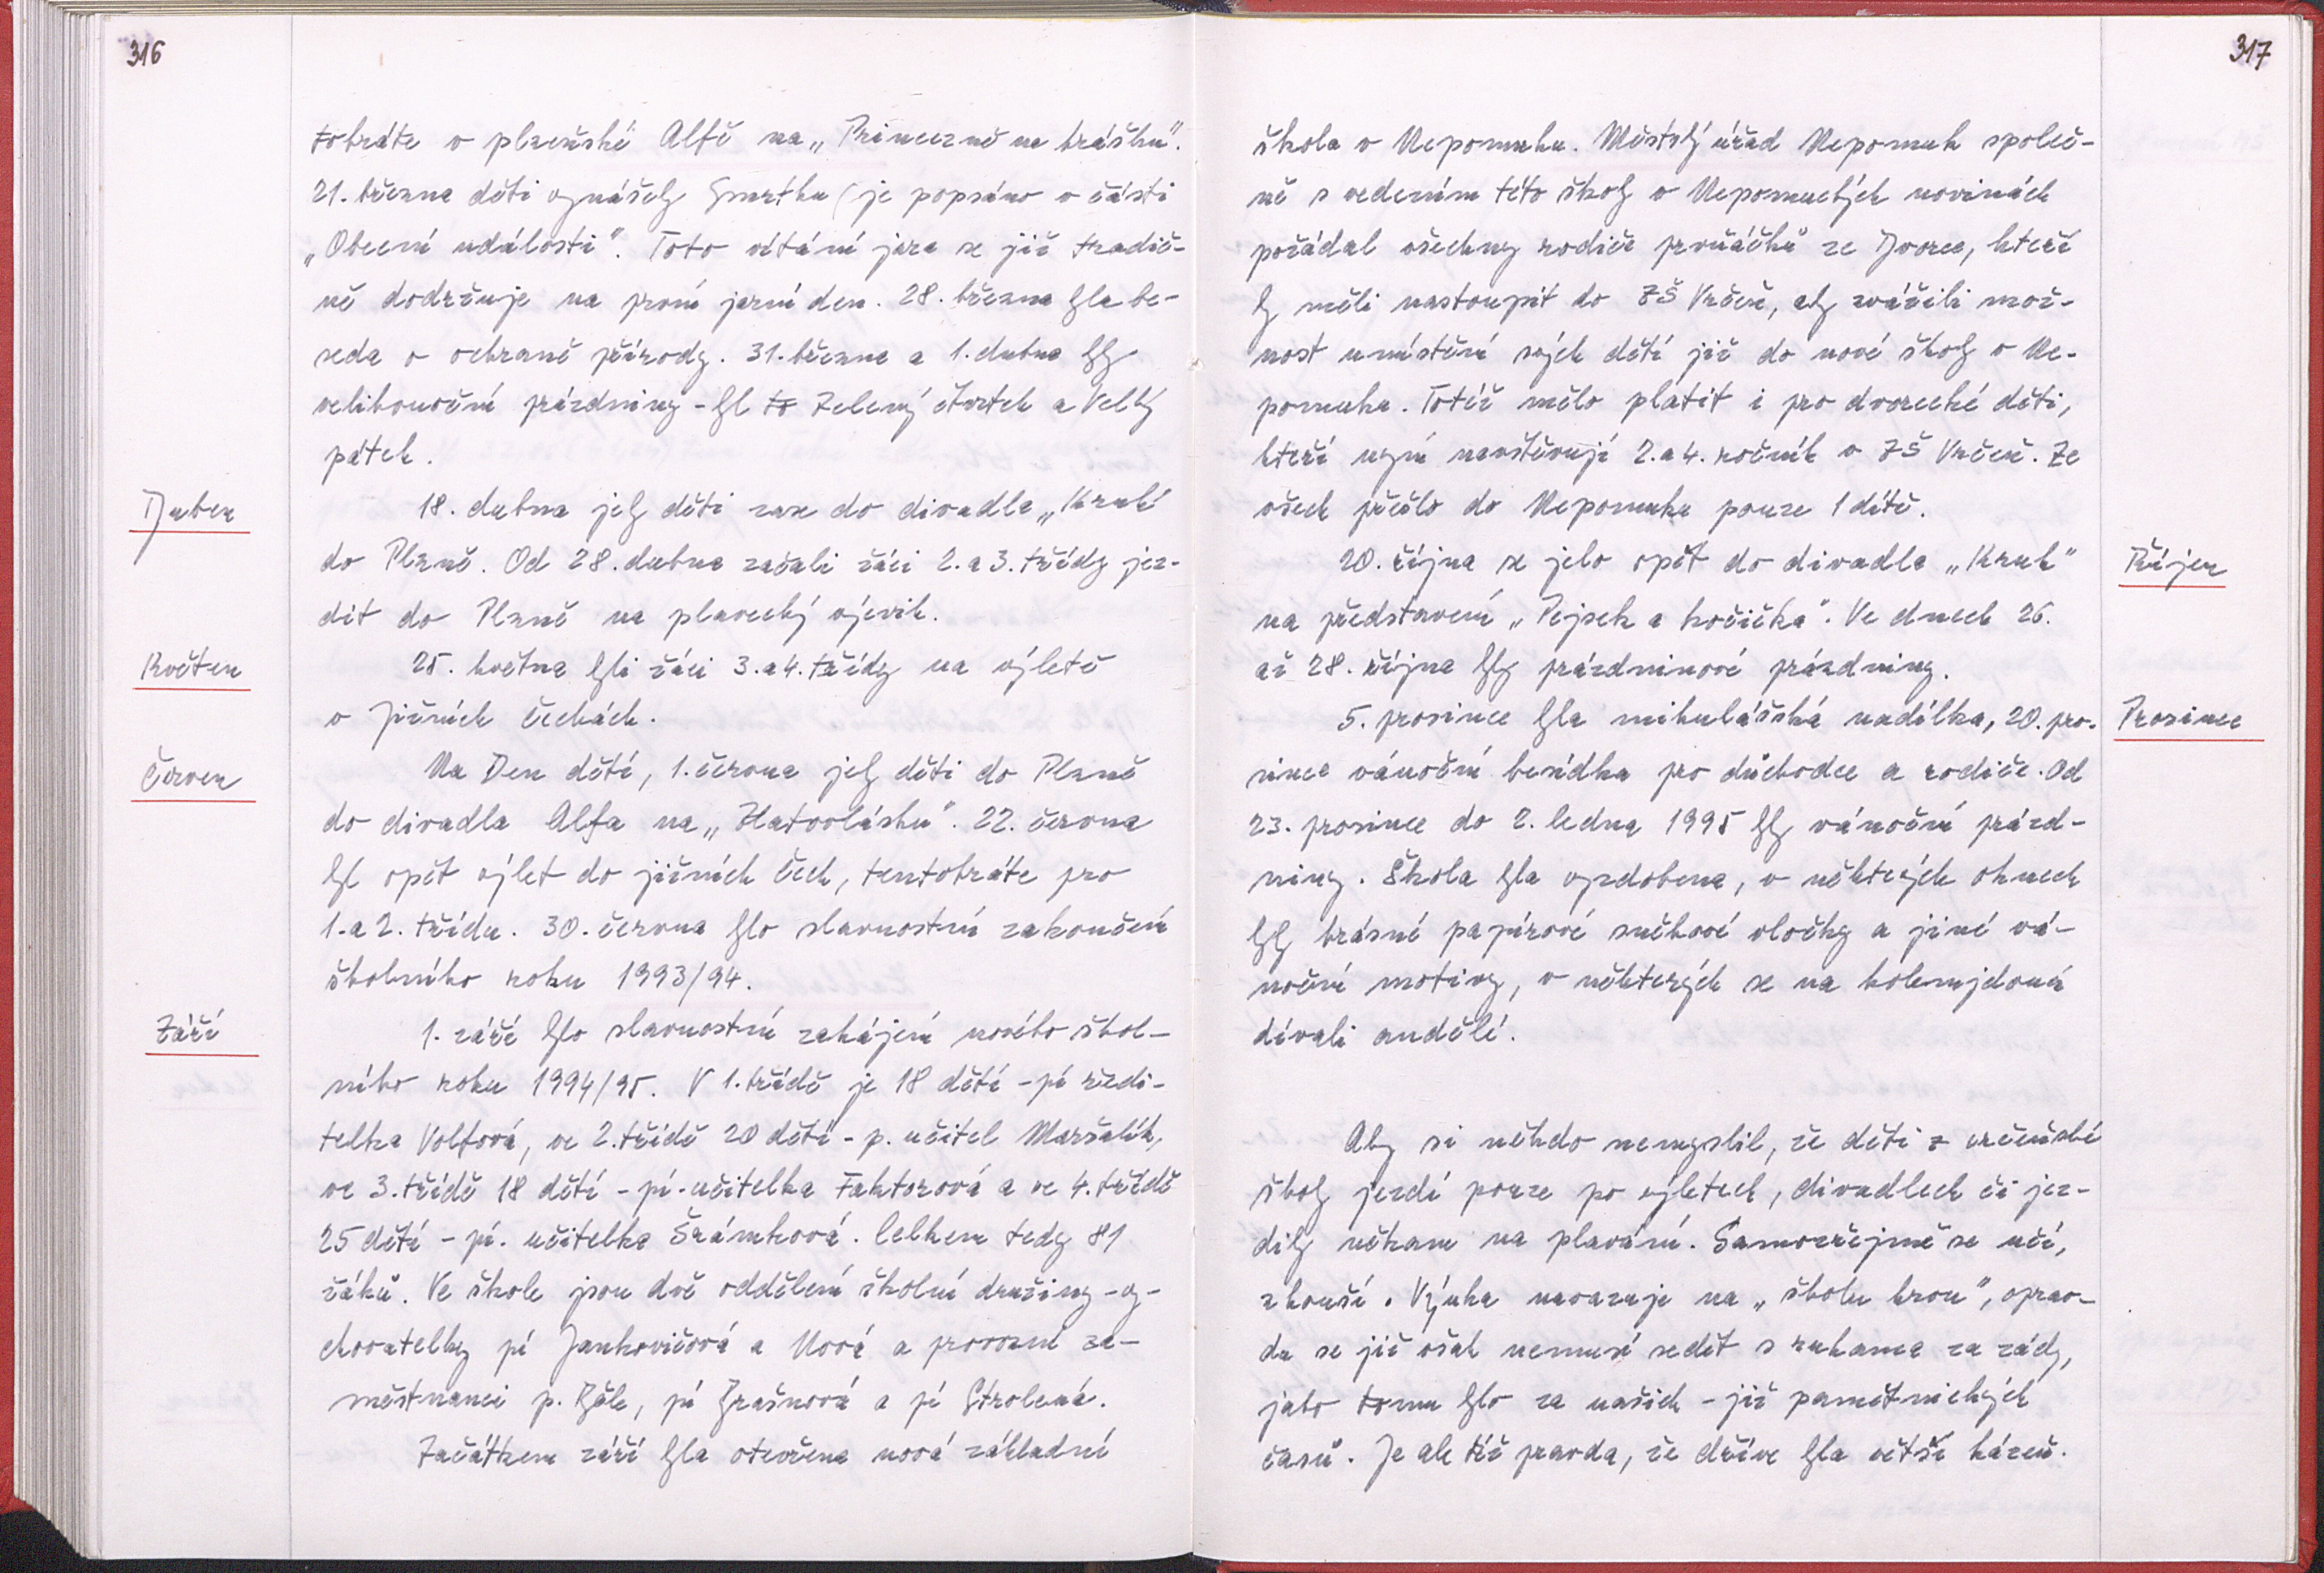 316
tokráte v plzeňské Alfě na „Princezně na hrášku".
21. března děti vynášely Smrtku (je popsáno v části
„Obecní události". Toto vítání jara se již tradič-
ně dodržuje na první jarní den. 28. března byla be-
seda o ochraně přírody. 31. března a 1. dubna byly
velikonoční prázdniny - byl to Zelený čtvrtek a Velký
pátek.
Duben
18. dubna jely děti zase do divadla „Kruh
do Plzně. Od 28. dubna začali žáci 2. a 3. třídy jez-
dit do Plzně na plavecký výcvik.
Květen
25. května byli žáci 3. a 4. třídy na výletě
v jižních Čechách.
Červen
Na Den dětí, 1. června jely děti do Plzně
do divadla Alfa na „Zlatovlásku". 22. června
byl opět výlet do jižních Čech, tentokráte pro
1. a 2. třídu. 30. června bylo slavnostní zakončení
školního roku 1993/94.
Září
1. září bylo slavnostní zahájení nového škol-
ního roku 1994/95. V 1. třídě je 18 dětí - pí ředi-
telka Volfová, ve 2. třídě 20 dětí - p. učitel Maršalík,
ve 3. třídě 18 dětí - pí. učitelka Faktorová a ve 4. třídě
25 dětí - pí. učitelka Šrámková. Celkem tedy 81
žáků. Ve škole jsou dvě oddělení školní družiny - vy-
chovatelky pí Jankovičová a Nová a provozní za-
městnanci p. pí a pí
Začátkem září byla otevřena nová základní
317
škola v Nepomuku. Městský úřad Nepomuk společ-
ně s vedením této školy v Nepomuckých novinách
požádal všechny rodiče prvňáčků ze Dvorce, kteří
by měli nastoupit do ZŠ Vrčeň, aby zvážili mož-
nost umístění svých dětí již do nové školy v Ne-
pomuku. Totéž mělo platit i pro dvorecké děti,
kteří nyní navštěvují 2. a 4. ročník v ZŠ Vrčeň. Ze
všech přešlo do Nepomuku pouze 1 dítě.
Říjen
20. října se jelo opět do divadla „Kruh"
na představení „Pejsek a kočička". Ve dnech 26.
až 28. října byly prázdninové prázdniny.
Prosinec
5. prosince byla mikulášská nadílka, 20. pro-
since vánoční besídka pro důchodce a rodiče. Od
23. prosince do 2. ledna 1995 byly vánoční prázd-
niny. Škola byla vyzdobena, v některých oknech
byly krásné papírové sněhové vločky a jiné vá-
noční motivy, v některých se na kolemjdoucí
dívali andělé.
Aby si někdo nemyslil, že děti z vrčeňské
školy jezdí pouze po výletech, divadlech či jez-
dily někam na plavání. Samozřejmě se učí,
zkouší. Výuka navazuje na „školu hrou", oprav-
du se již však nemusí sedět s rukama za zády,
jako tomu bylo za našich - již pamětnických
časů. Je ale též pravda, že dříve byla větší kázeň.